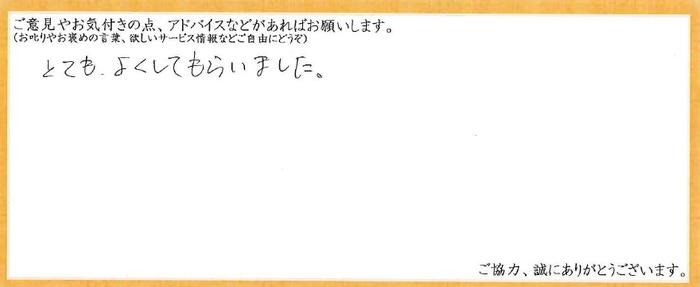 ご意見やお気付きの点、アドバイスなどがあればお願いします。
(お叱りやお褒めの言葉、欲しいサービス情報などご自由にどうぞ)
とても、よくしてもらいました。
ご協力、誠にありがとうございます。